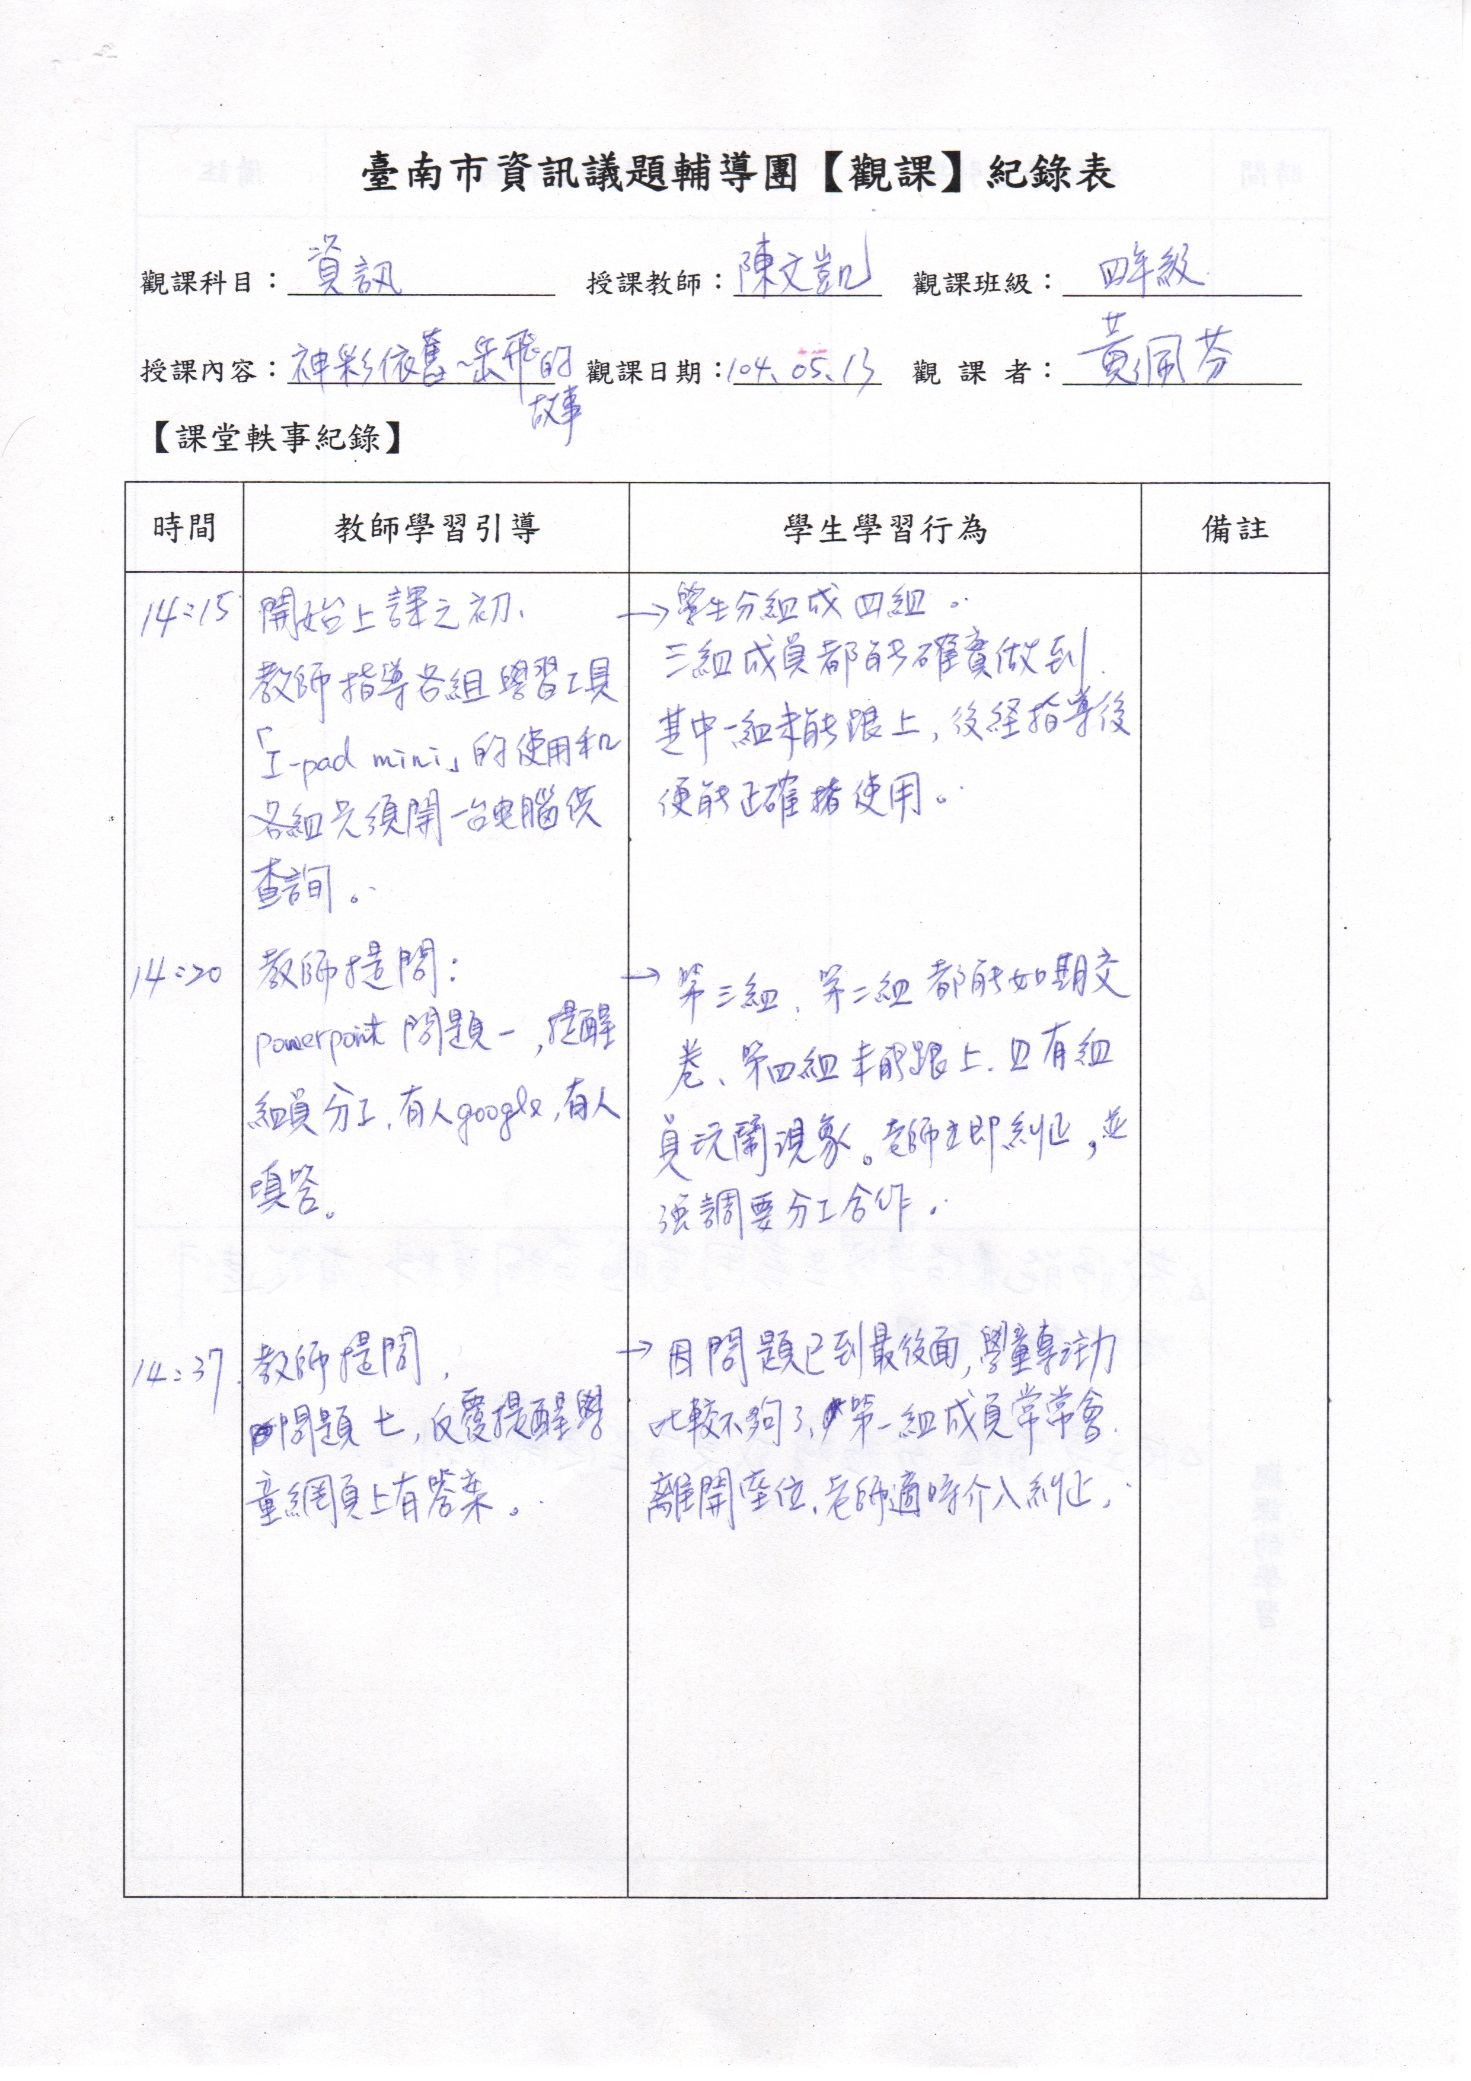 臺南市資訊議題輔導團【觀課】紀錄表
觀課科目：資訊 授課教師：陳文凱 觀課班級：四年級
授課內容：神彩依舊~岳飛的故事 觀課日期：104.05.13 觀課者：黃佩芬
【課堂軼事紀錄】
時間 教師學習引導 學生學習行為 備註
14:15 開始上課之初、
教師指導各組學習工具
「I-pad mini」的使用和
各組先須開一台電腦供
查詢。
→學生分組成四組。
三組成員都能確實做到
其中一組未能跟上，後經指導後
便能正確使用。
14:20 教師提問：
powerpoint 問題一，提醒
組員分工，有人google，有人
填答。
→第三組、第二組都能如期交
卷、第四組未能跟上、且有組
員玩鬧現象。老師立即糾正，並
強調要分工合作。
14:37 教師提問，
問題七，反覆提醒學
童網頁上有答案。
→因問題已到最後面，學童專注力
比較不夠了，第一組成員常常會
離開座位、老師適時介入糾正。